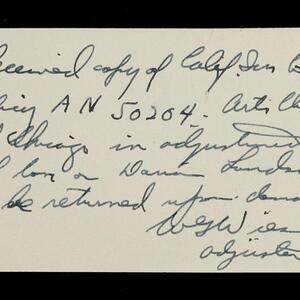 eceived copy of Calif. Ins
licy AN 50204. Arts Cl
Chicago in adjustment
l loss on Dana
be returned upon dem
adjuster